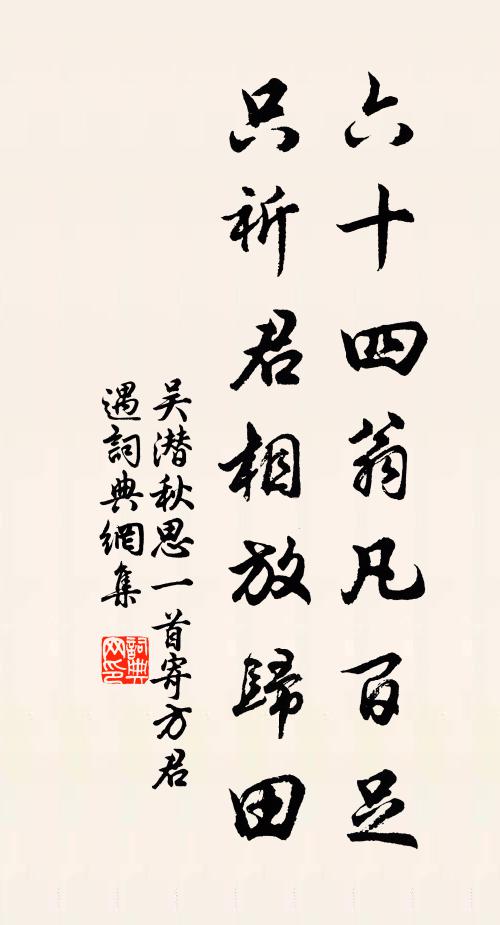 六十四翁凡百足
只祈君相放歸田
吴潜秋思一首寄方君
遇詞典網集
詞典
网印